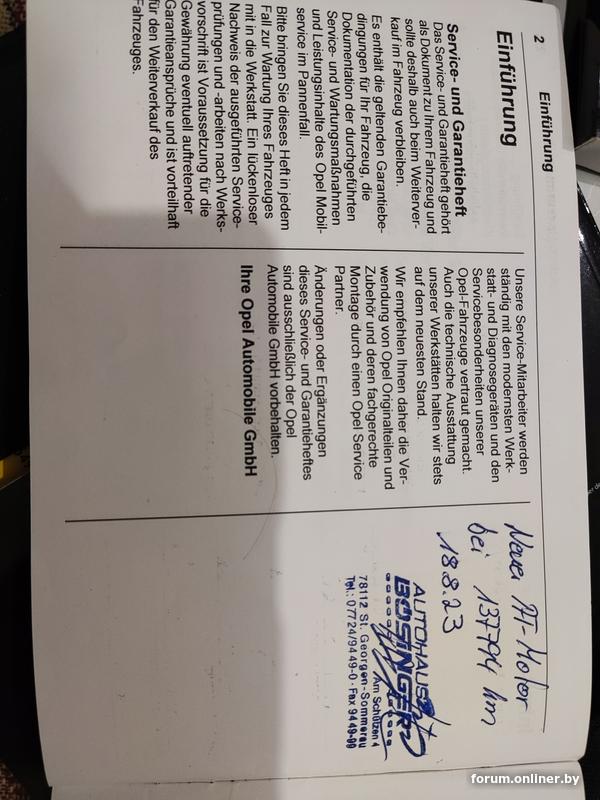 2 Einführung
Einführung
Service- und Garantieheft
Das Service- und Garantieheft gehört
als Dokument zu Ihrem Fahrzeug und
sollte deshalb auch beim Weiterver-
kauf im Fahrzeug verbleiben.
Es enthält die geltenden Garantiebe-
dingungen für Ihr Fahrzeug, die
Dokumentation der durchgeführten
Service- und Wartungsmaßnahmen
und Leistungsinhalte des Opel Mobil-
service im Pannenfall.
Bitte bringen Sie dieses Heft in jedem
Fall zur Wartung Ihres Fahrzeuges
mit in die Werkstatt. Ein lückenloser
Nachweis der ausgeführten Service-
prüfungen und -arbeiten nach Werks-
vorschrift ist Voraussetzung für die
Gewährung eventuell auftretender
Garantieansprüche und ist vorteilhaft
für den Weiterverkauf des
Fahrzeuges.
Unsere Service-Mitarbeiter werden
ständig mit den modernsten Werk-
statt- und Diagnosegeräten und den
Servicebesonderheiten unserer
Opel-Fahrzeuge vertraut gemacht.
Auch die technische Ausstattung
unserer Werkstätten halten wir stets
auf dem neuesten Stand.
Wir empfehlen Ihnen daher die Ver-
wendung von Opel Originalteilen und
Zubehör und deren fachgerechte
Montage durch einen Opel Service
Partner.
Änderungen oder Ergänzungen
dieses Service- und Garantieheftes
sind ausschließlich der Opel
Automobile GmbH vorbehalten.
Ihre Opel Automobile GmbH
Neuer AT-Motor
bei 137794 km
18.8.23
AUTOHAUS
BÖSINGER
Am Schützen 4
78112 St. Georgen-Sommerau
Tel.: 07724/9449-0 · Fax 9449-99
forum.onliner.by